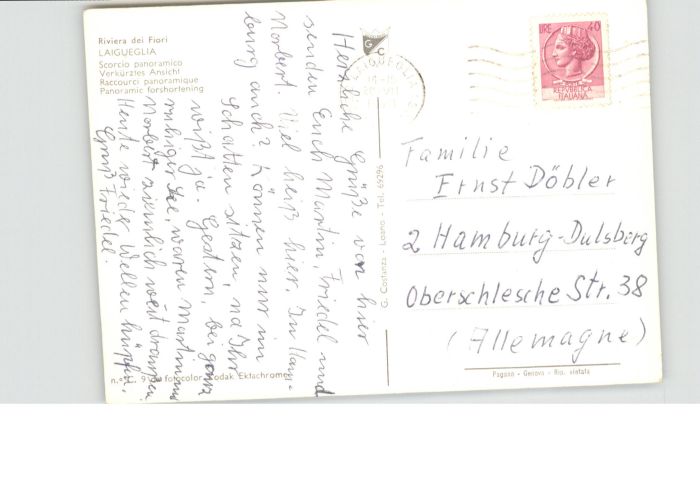 Riviera dei Fiori
LAIGUEGLIA
Scorcio panoramico
Verkürzles Ansicht
Raccourci panoramique
Panoramic forshortening
Herzliche Grüße von hier
senden Euch Martin, Friedel und
Norbert. Viel heiß hier. In Ham-
burg auch? Können nur im
Schatten sitzen, na Ihr
wißt ja. Gestern, bei ganz
ruhiger See, waren Martin und
Norbert ziemlich weit draußen.
Heute wieder Wellen hüpfen.
Gruß Friedel.
G C
LAIGUEGLIA
LIRE 40
REPUBBLICA
ITALIANA
Familie
Ernst Döbler
2 Hamburg-Dulsberg
Oberschlesche Str. 38
(Allemagne)
G. Costanza - Loano - Tel. 69296
fotocolor Kodak Ektachrome
Pagano - Genova - Rip. vietata